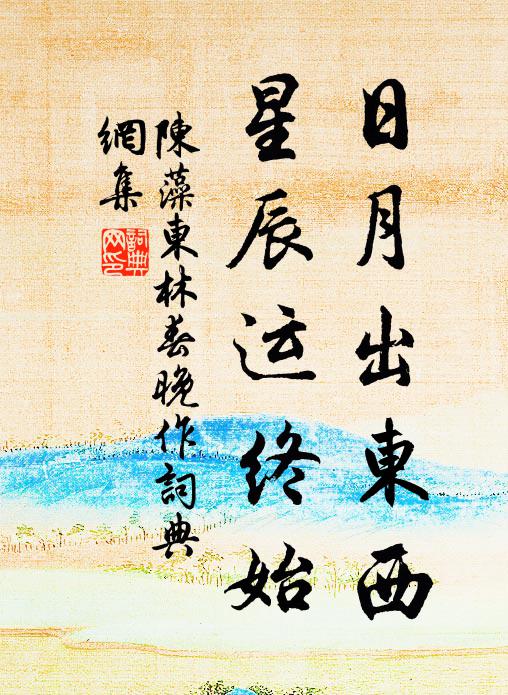 日月出東西
星辰运終始
陳藻東林春晚作詞典
網集
詞典
网印